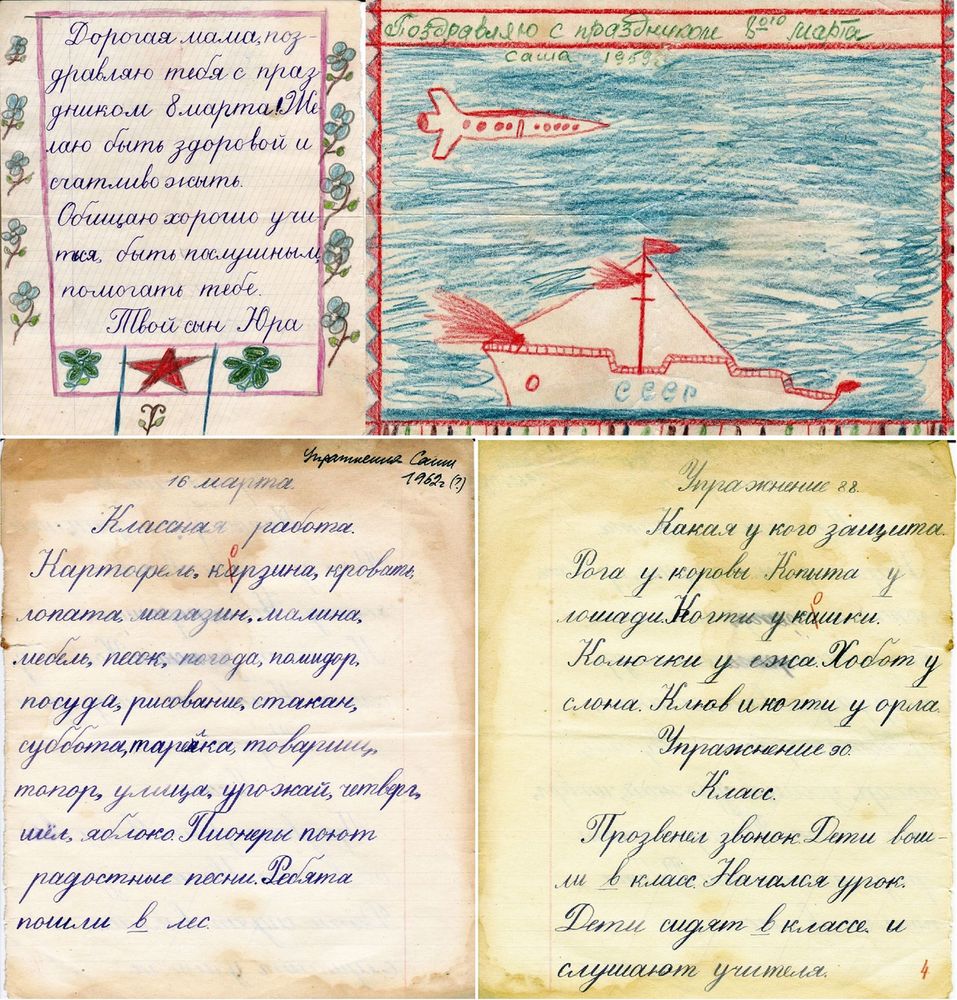 Дорогая мама, поз-
дравляю тебя с праз
дником 8 марта! Же
лаю быть здоровой и
счатливо жыть.
Обищаю хорошо учи-
ться, быть послушным,
помогать тебе.
Твой сын Юра
Поздравляю с праздником 8ого марта
Саша 1959г
СССР
Упражнения Саши
1962г (?)
16 марта.
Классная работа.
Картофель, карзина, кровать,
о
лопата, магазин, малина,
мебель, песок, погода, помидор,
посуда, рисование, стакан,
суббота, тарелка, товарищ,
топор, улица, урожай, четверг,
шёл, яблоко. Пионеры поют
радостные песни. Ребята
пошли в лес.
Упражнение 88.
Какая у кого защита.
Рога у коровы. Копыта у
лошади. Когти у кашки.
о
Колючки у ежа. Хобот у
слона. Клюв и когти у орла.
Упражнение 90.
Класс.
Прозвенел звонок. Дети вош-
ли в класс. Начался урок.
Дети сидят в классе и
слушают учителя.
4